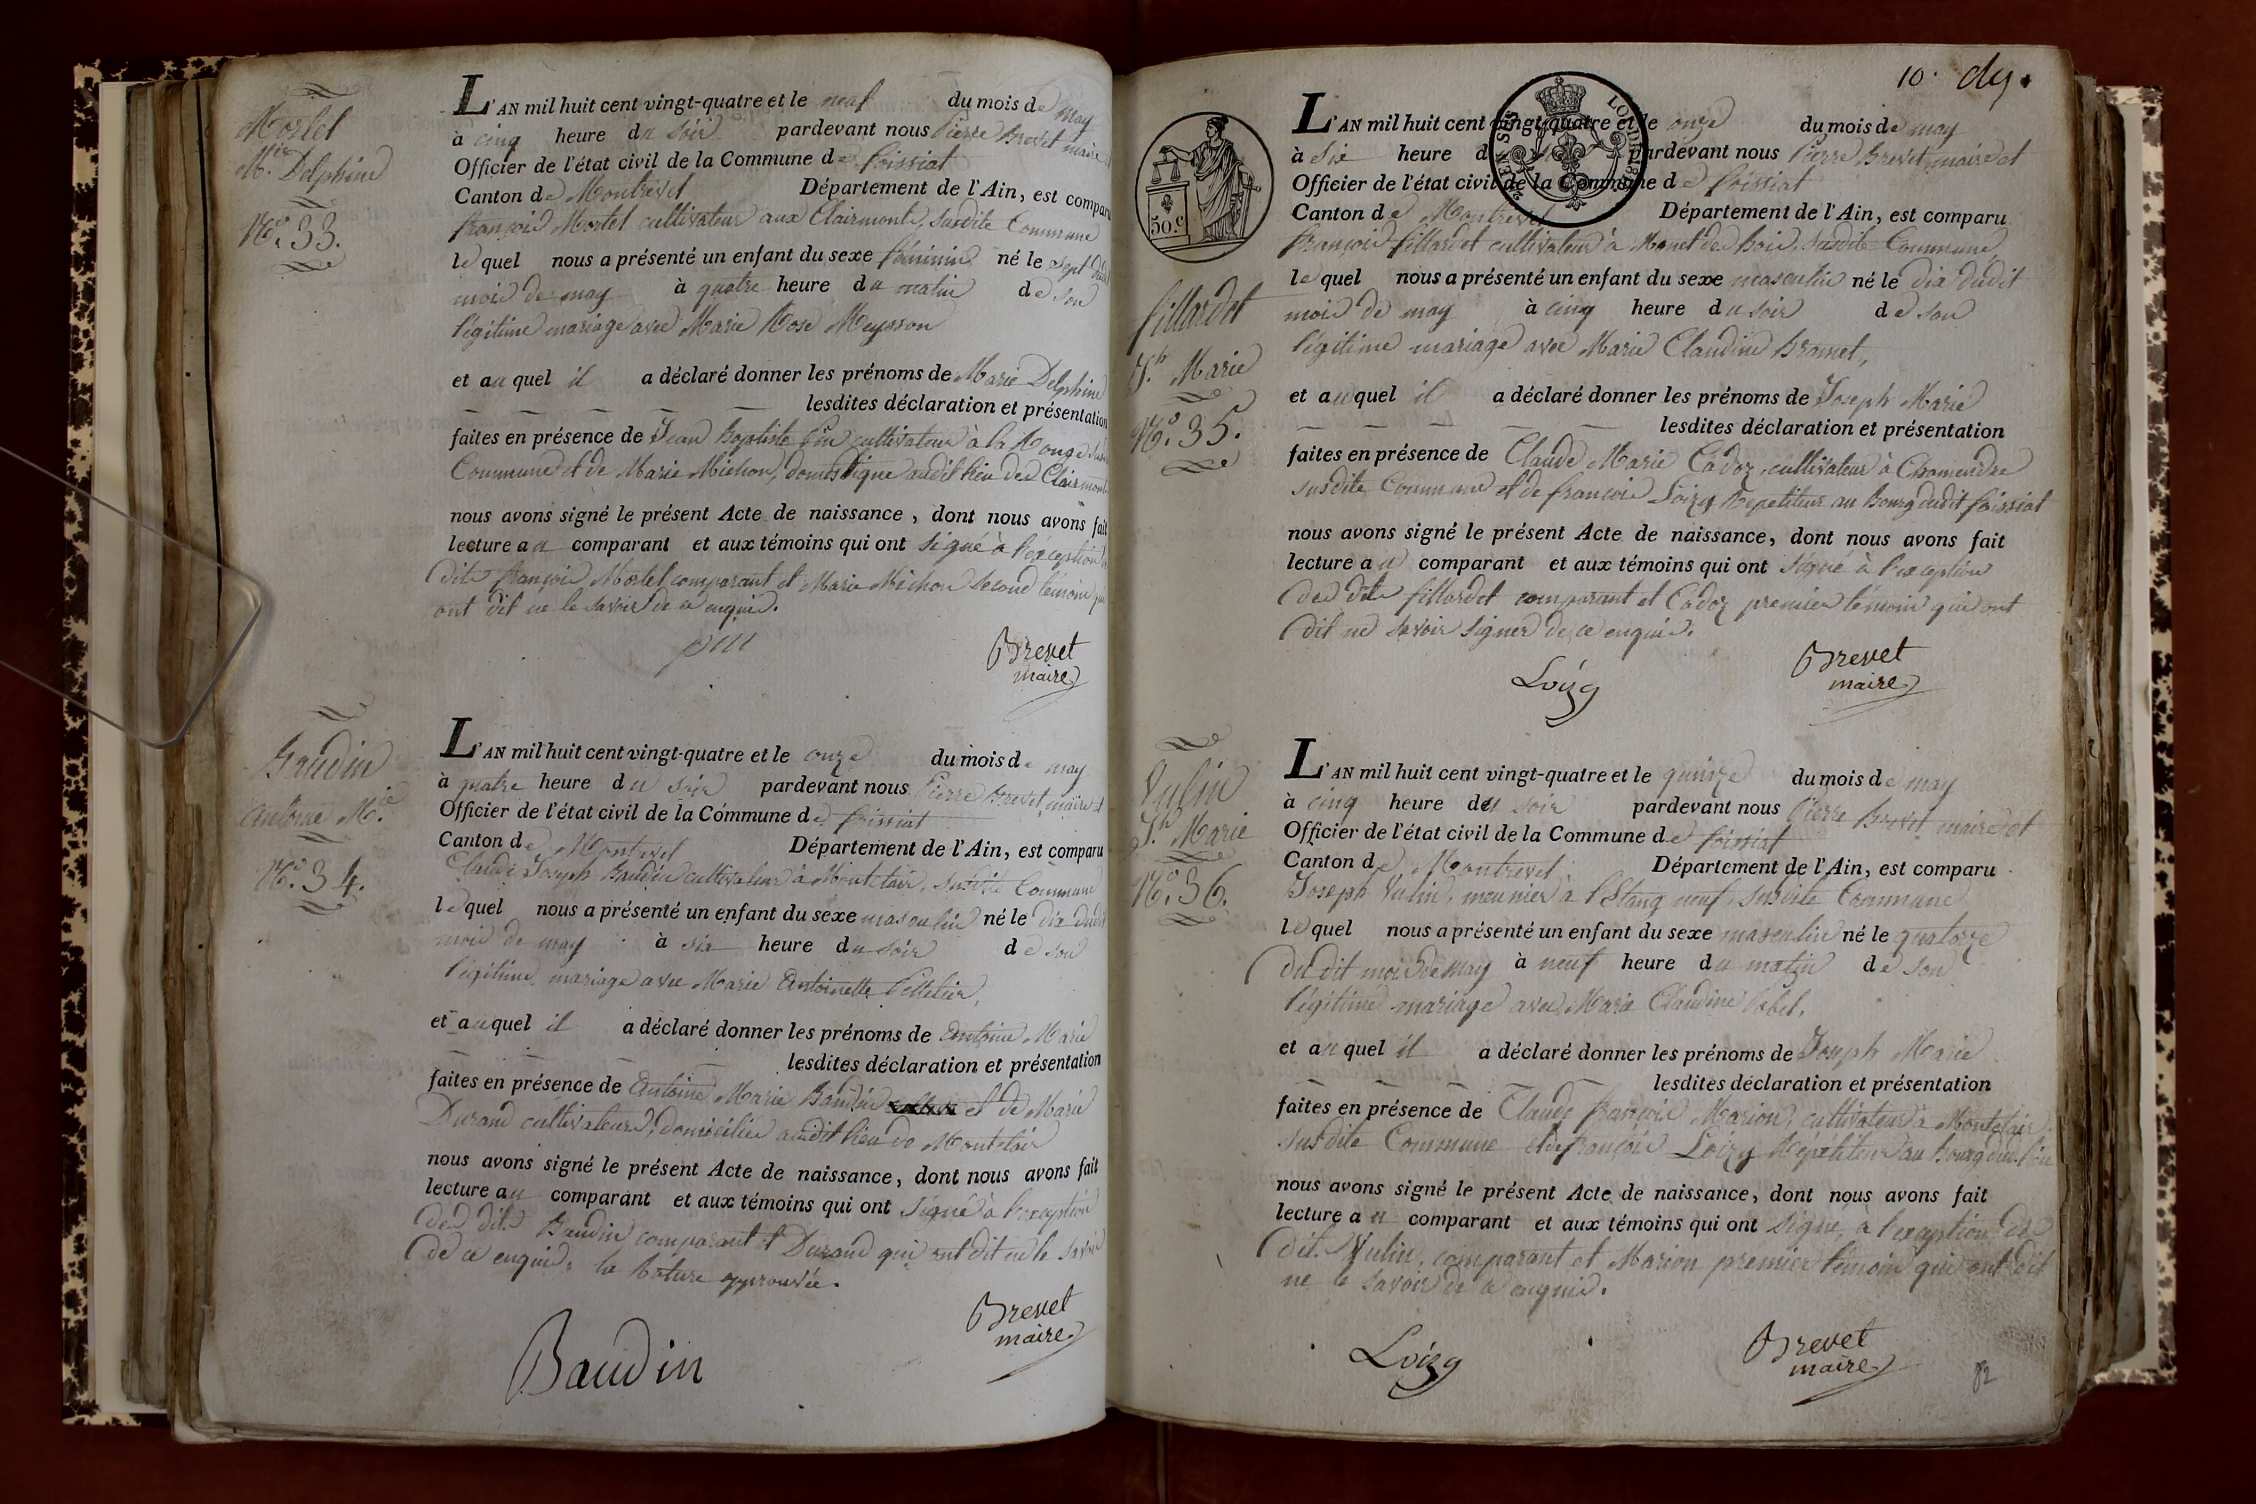 Mortel
M.ie Delphine
N.o 33.
L'AN mil huit cent vingt-quatre et le neuf du mois de may
à cinq heure du soir pardevant nous Pierre Brevet maire
Officier de l'état civil de la Commune de foissiat
Canton de Montrevel Département de l'Ain, est comparu
françois Mortel cultivateur aux Clairmonts, susdite Commune
lequel nous a présenté un enfant du sexe féminin né le sept dudit
mois de may à quatre heure du matin de son
légitime mariage avec Marie Rose Meysson
et auquel il a déclaré donner les prénoms de Marie Delphine
lesdites déclaration et présentation
faites en présence de Jean Baptiste cultivateur à la
Commune et de Marie Michon, domestique audit lieu des Clairmonts
nous avons signé le présent Acte de naissance, dont nous avons fait
lecture au comparant et aux témoins qui ont signé à l'éxception
dits françois Mortel comparant et Marie Michon second témoin qui
ont dit ne le savoir de ce enquis.
Brevet
maire
Baudin
antoine M.ie
N.o 34.
L'AN mil huit cent vingt-quatre et le onze du mois de may
à quatre heure du soir pardevant nous Pierre Brevet, maire et
Officier de l'état civil de la Commune de foissiat
Canton de Montrevel Département de l'Ain, est comparu
Claude Joseph Baudin cultivateur à Montclair, susdite Commune
lequel nous a présenté un enfant du sexe masculin né le dix dudit
mois de may à six heure du soir de son
légitime mariage avec Marie Antoinette Pelletier,
et auquel il a déclaré donner les prénoms de antoine Marie
lesdites déclaration et présentation
faites en présence de antoine Marie Baudin et de Marie
Durand cultivateurs, domiciliés audit lieu de Montclair
nous avons signé le présent Acte de naissance, dont nous avons fait
lecture au comparant et aux témoins qui ont signé à l'exception
des dits Baudin comparant et Durand qui ont dit ne le savoir
de ce enquis. la rature approuvée.
Baudin
Brevet
maire
10.
50.c
fillardet
J.h Marie
N.o 35.
L'AN mil huit cent vingt-quatre et le onze du mois de may
à six heure du pardevant nous Pierre Brevet, maire et
Officier de l'état civil de la Commune de foissiat
Canton de Montrevel Département de l'Ain, est comparu
françois fillardet cultivateur à Monet des bois, susdite Commune,
lequel nous a présenté un enfant du sexe masculin né le dix dudit
mois de may à cinq heure du soir de son
légitime mariage avec Marie Claudine Bramet,
et auquel il a déclaré donner les prénoms de Joseph Marie
lesdites déclaration et présentation
faites en présence de Claude Marie Cadoz cultivateur à Chamendre
susdite Commune et de françois Loizy Répétiteur au Bourg dudit foissiat
nous avons signé le présent Acte de naissance, dont nous avons fait
lecture au comparant et aux témoins qui ont signé à l'exception
des dits fillardet comparant et Cadoz premier témoin qui ont
dit ne savoir signer de ce enquis.
Loizy
Brevet
maire
Vulin
J.h Marie
N.o 36.
L'AN mil huit cent vingt-quatre et le quinze du mois de may
à cinq heure du soir pardevant nous Pierre Brevet maire et
Officier de l'état civil de la Commune de foissiat
Canton de Montrevel Département de l'Ain, est comparu
Joseph Vulin, meunier à l'Etang neuf, susdite Commune
lequel nous a présenté un enfant du sexe masculin né le quatorze
du dit mois de may à neuf heure du matin de son
légitime mariage avec Marie Claudine
et auquel il a déclaré donner les prénoms de Joseph Marie
lesdites déclaration et présentation
faites en présence de Claude françois Marion, cultivateur à Montclair
susdite Commune et de françois Loizy Répétiteur au Bourg dudit lieu
nous avons signé le présent Acte de naissance, dont nous avons fait
lecture au comparant et aux témoins qui ont signé, à l'exception des
dits Vulin, comparant et Marion premier témoin qui ont dit
ne le savoir de ce enquis.
Loizy
Brevet
maire
82